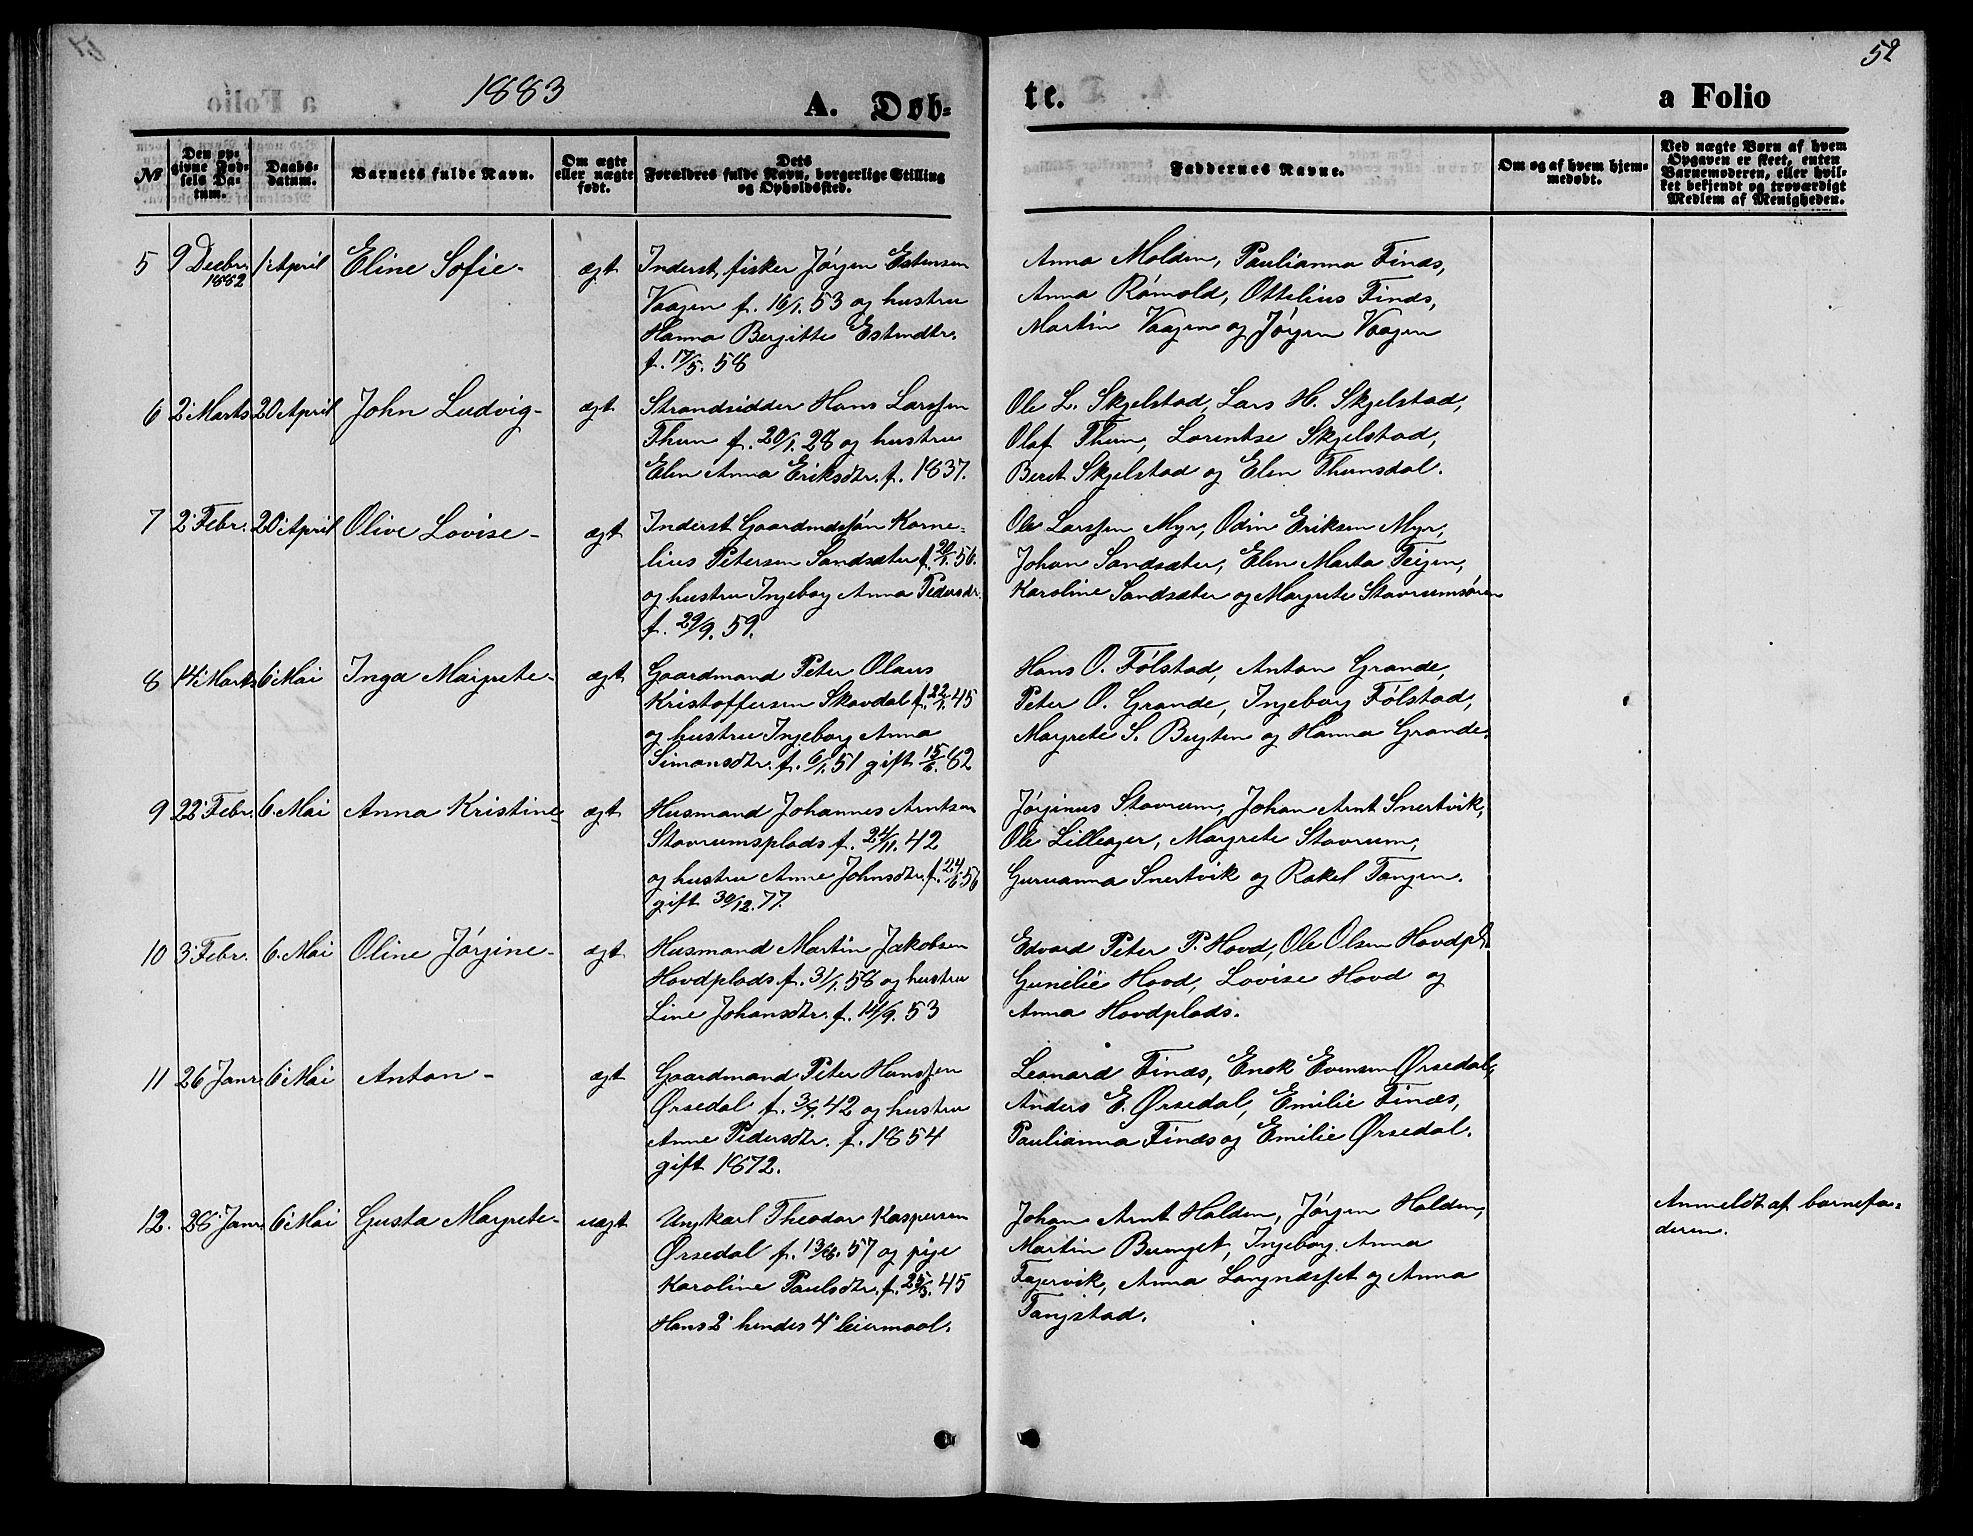 1883
A. Døb-
te.
a Folio
52
No
Den op-
givne Fød-
sels Da-
tum.
Daabs-
datum.
Barnets fulde Navn.
Om ægte
eller uægte
født.
Dets
Forældres fulde Navn, borgerlige Stilling
og Opholdssted.
Faddernes Navne.
Om og af hvem hjem-
medøbt.
Ved uægte Børn af hvem
Opgaven er skeet, enten
Barnemoderen, eller hvil-
ket bekjendt og troværdigt
Medlem af Menigheden.
5 9 Decbr. 1882 1' April Eline Sofie - ægt
Inderst, fisker Jørgen Estensen
Vaagen f. 16/1. 53 og hustru
Hanna Bergitte Estendtr.
f. 17/5. 58
Anna Molden, Paulianna Finæs,
Anna Rømold, Ottelius Finæs,
Martin Vaagen og Jørgen Vaagen
6 2' Marts 20 April John Ludvig - ægt
Strandsidder Hans Larssen
Thun f. 20/1. 28 og hustru
Elen Anna Eriksdtr. f. 1837.
Ole L. Skjelstad, Lars H. Skjelstad,
Olaf Thun, Lorentse Skjelstad,
Berit Skjelstad og Elen Thunsdal.
7 2' Febr. 20' April Olive Lovise - ægt
Inderst Gaardmdssøn Korne-
lius Petersen Sandsæter f. 26/1. 56.
og hustru Ingeborg Anna Pedersdr.
f. 29/9. 59.
Ole Larssen Myr, Odin Eriksen Myr,
Johan Sandsæter, Elen Marta Teigen,
Karoline Sandsæter og Margrete Stavrumsøren
8 14' Marts 6' Mai Inga Margrete - ægt
Gaardmand Peter Olaus
Kristoffersen Skavdal f. 22/7. 45
og hustru Ingeborg Anna
Simonsdtr. f. 6/1. 51 gift 15/6. 82
Hans O. Følstad, Anton Grande,
Peter O. Grande, Ingeborg Følstad,
Margrete S. Bugten og Hanna Grande.
9 22' Febr. 6' Mai Anna Kristine - ægt
Husmand Johannes Arntsen
Stavrumsplads f. 24/11. 42
og hustru Anne Johnsdtr. f. 24/6. 56
gift 30/12. 77.
Jørginus Stavrum, Johan Arnt Snertvik,
Ole Lilleager, Margrete Stavrum,
Guruanna Snertvik og Rakel Tangen.
10 3' Febr. 6. Mai Oline Jørgine - ægt
Husmand Martin Jakobsen
Hovdplads f. 31/1. 58 og hustru
Line Johansdtr. f. 14/9. 53
Edvard Peter P. Hovd, Ole Olsen Hovdpl.
Gunelie Hovd, Lovise Hovd og
Anna Hovdplads.
11 26 Janr. 6' Mai Anton - ægt
Gaardmand Peter Hanssen
Ørsedal f. 3/9. 42 og hustru
Anne Pedersdtr. f. 1854
gift 1872.
Leonard Finæs, Enok Evensen Ørsedal,
Anders E. Ørsedal, Emilie Finæs,
Paulianna Finæs og Emilie Ørsedal.
12. 28' Janr. 6' Mai Gusta Margrete - uægt
Ungkarl Theodor Kaspersen
Ørsedal f. 13/8. 57 og pige
Karoline Paulsdtr. f. 25/5. 45
Hans 2' hendes 4' leiermaal.
Johan Arnt Halden, Jørgen Halden,
Martin Berget, Ingeborg Anna
Fagervik, Anna Langnæsset og Anna
Tangstad.
Anmeldt af barnefa-
deren.